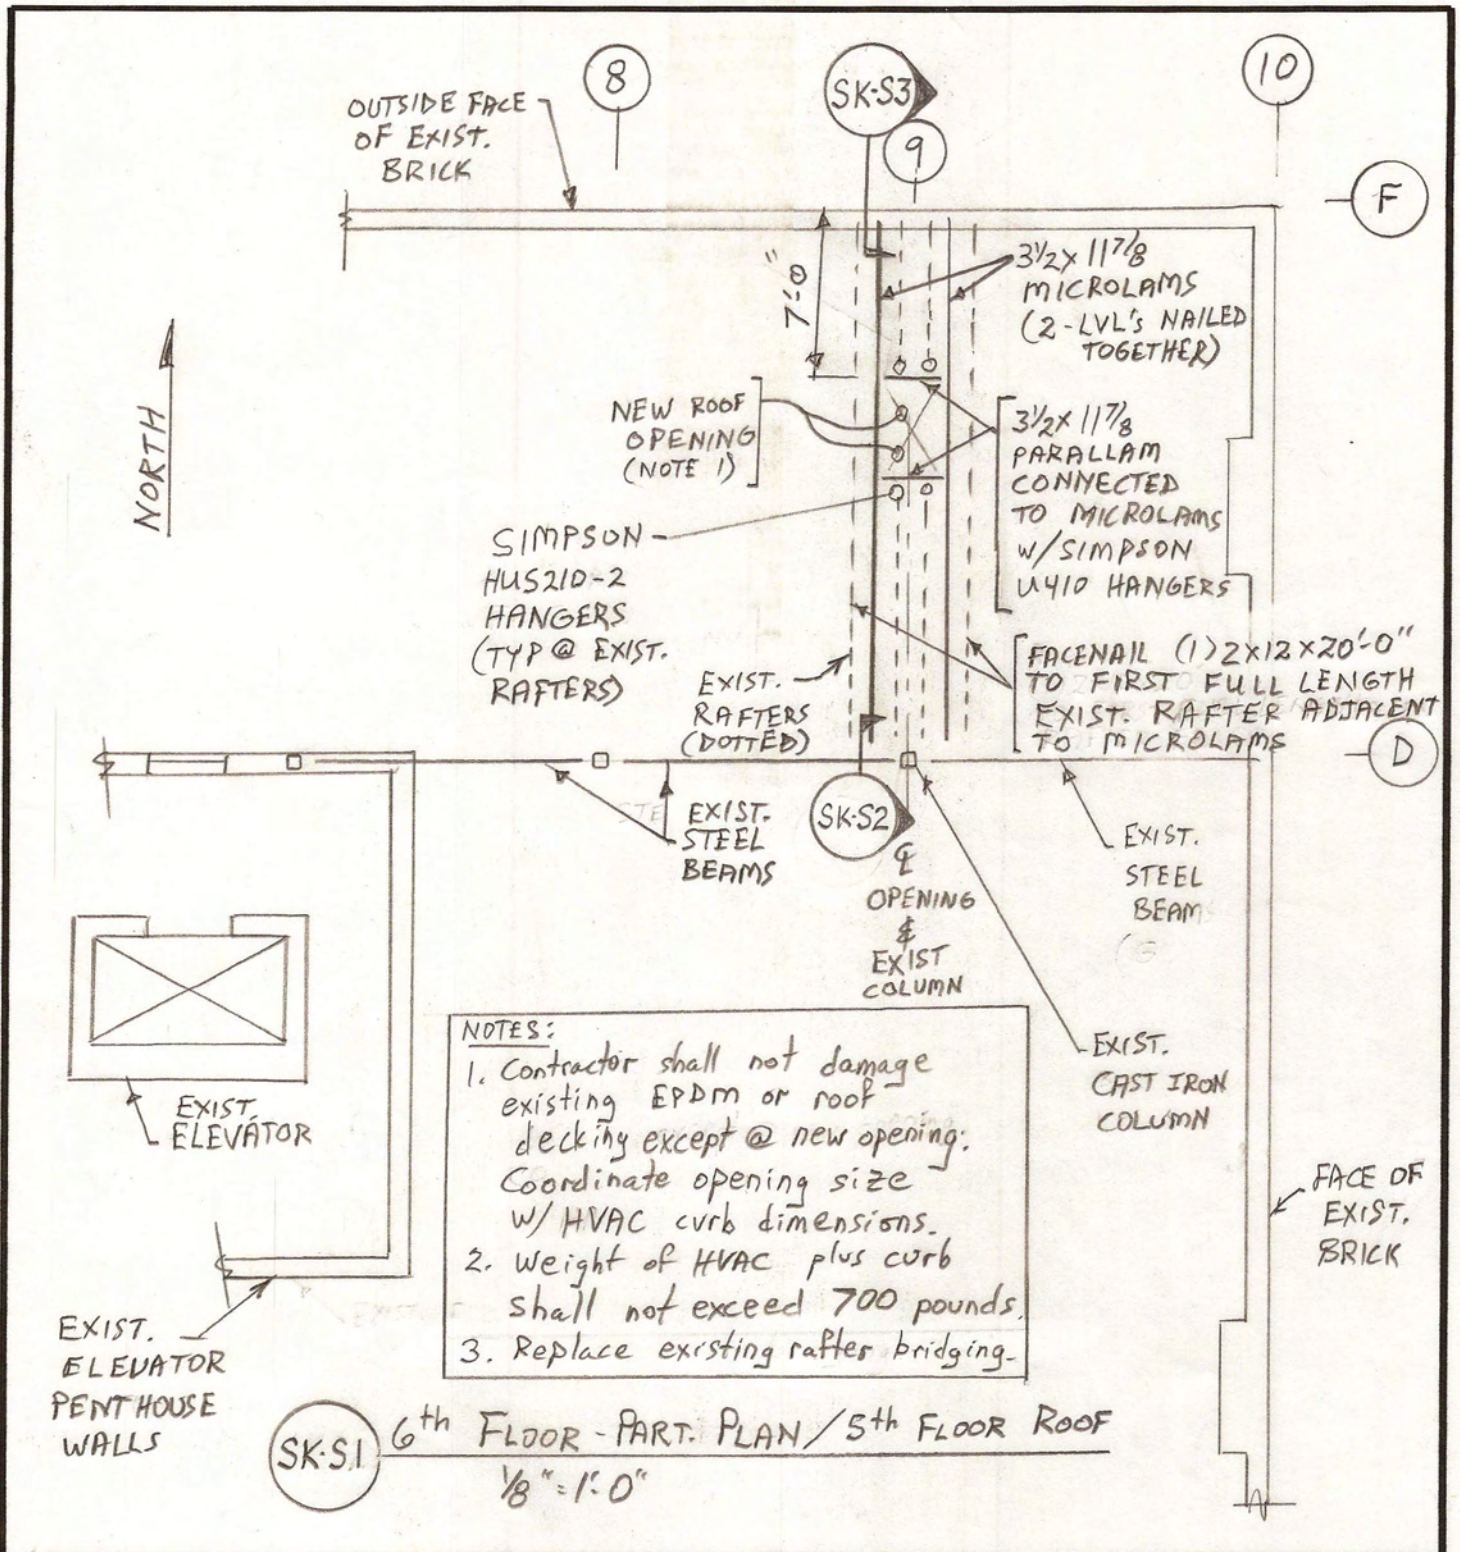 8
SK-S3
9
10
F
OUTSIDE FACE
OF EXIST.
BRICK
7'-0"
3 1/2 x 11 7/8
MICROLAMS
(2-LVL's NAILED
TOGETHER)
NORTH
NEW ROOF
OPENING
(NOTE 1)
3 1/2 x 11 7/8
PARALLAM
CONNECTED
TO MICROLAMS
W/SIMPSON
U410 HANGERS
SIMPSON
HUS210-2
HANGERS
(TYP @ EXIST.
RAFTERS)
EXIST.
RAFTERS
(DOTTED)
FACENAIL (1) 2x12x20'-0"
TO FIRST FULL LENGTH
EXIST. RAFTER ADJACENT
TO MICROLAMS
D
EXIST.
STEEL
BEAMS
SK-S2
℄
OPENING
&
EXIST
COLUMN
EXIST.
STEEL
BEAM
EXIST.
CAST IRON
COLUMN
EXIST.
ELEVATOR
NOTES:
1. Contractor shall not damage
existing EPDM or roof
decking except @ new opening.
Coordinate opening size
W/ HVAC curb dimensions.
2. Weight of HVAC plus curb
shall not exceed 700 pounds.
3. Replace existing rafter bridging.
FACE OF
EXIST.
BRICK
EXIST.
ELEVATOR
PENTHOUSE
WALLS
SK-S.1
6th FLOOR - PART. PLAN / 5th FLOOR ROOF
1/8" = 1'-0"